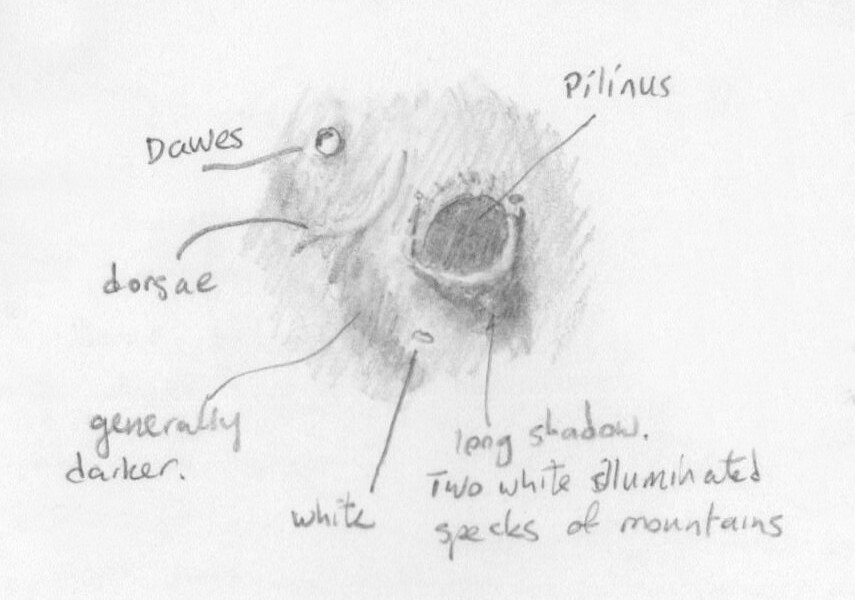 Pilinus
Dawes
dorsae
generally
darker.
long shadow.
Two white illuminated
specks of mountains
white